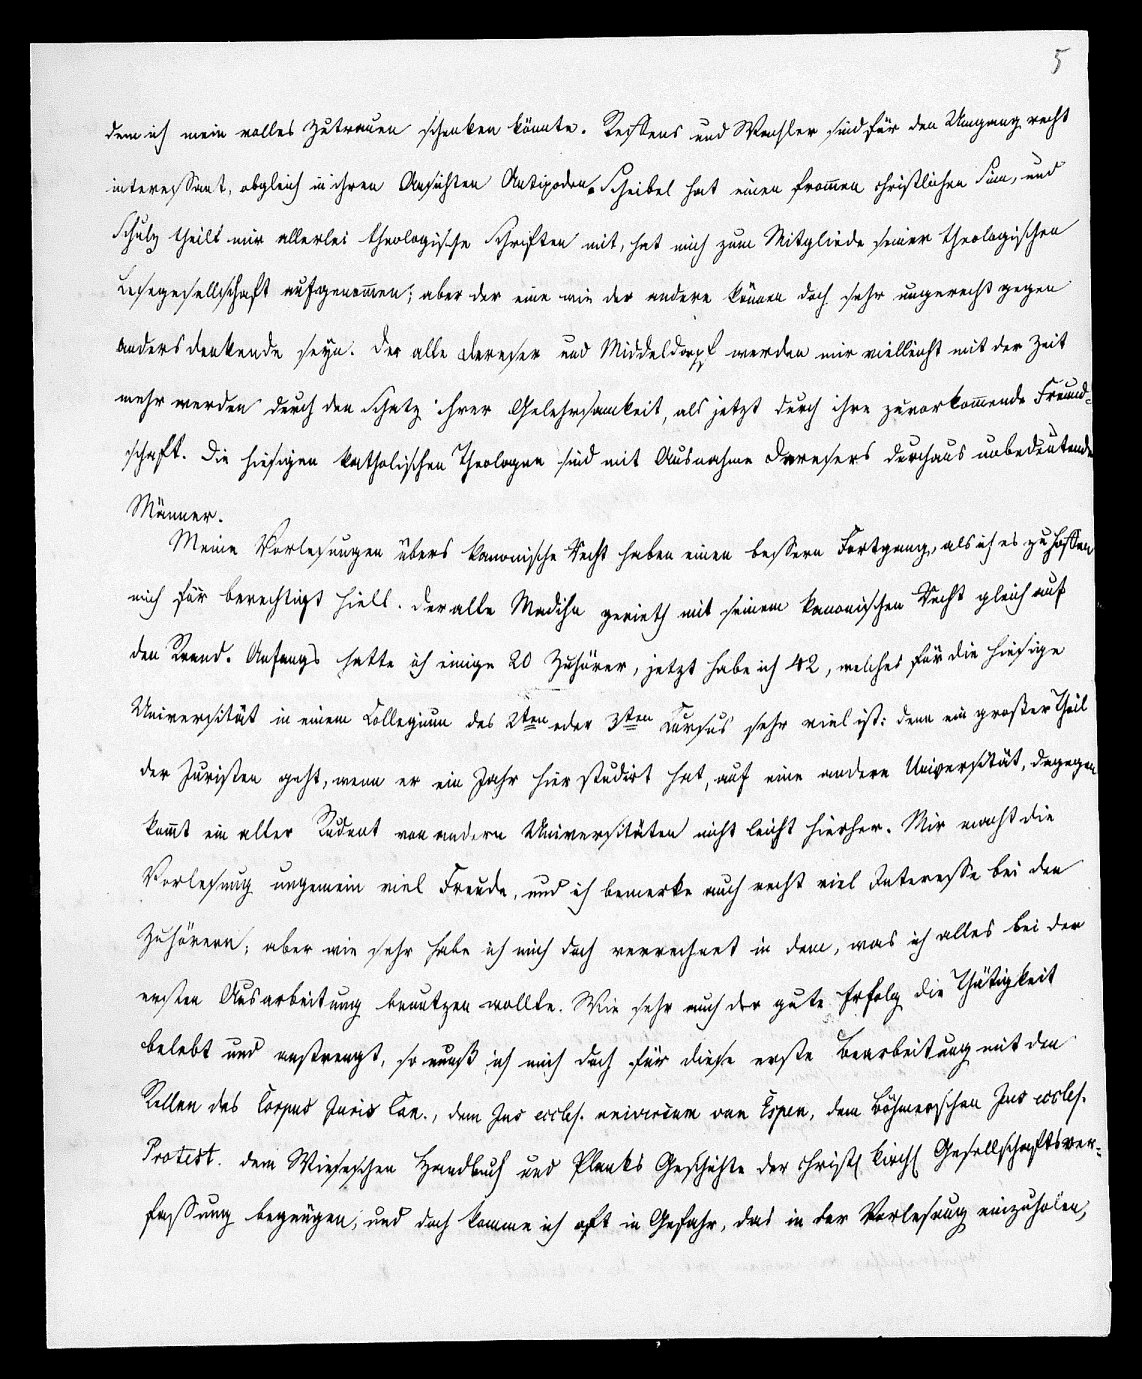 5
dem ich mein volles Zutrauen schenken könnte. Passens und Wachler sind für den Umgang recht
interessant, obgleich in ihren Ansichten Antipoden. Scheibel hat einen frommen christlichen Sinn, und
Schulz theilt mir allerlei theologische Schriften mit, hat mich zum Mitgliede seiner theologischen
Lesegesellschaft aufgenommen; aber der eine wie der andere können doch sehr ungerecht gegen
anders denkende seyn. Der alte Dereser und Middeldorpf werden mir vielleicht mit der Zeit
mehr werden durch den Schatz ihrer Gelehrsamkeit, als jetzt durch ihre zuvorkommende Freund-
schaft. Die hiesigen katholischen Theologen sind mit Ausnahme Deresers durchaus unbedeutende
Männer.
Meine Vorlesungen übers kanonische Recht haben einen bessern Fortgang, als ich es zu hoffen
mich für berechtigt hielt. Der alte Madihn gerieth mit seinem kanonischen Recht gleich auf
den Rand. Anfangs hatte ich einige 20 Zuhörer, jetzt habe ich 42, welches für die hiesige
Universität in einem Collegium des 2ten oder 3ten Cursus sehr viel ist: denn ein großer Theil
der Juristen geht, wenn er ein Jahr hier studirt hat, auf eine andere Universität, dagegen
kommt ein alter Student von andern Universitäten nicht leicht hierher. Mir macht die
Vorlesung ungemein viel Freude, und ich bemerke auch recht viel Interesse bei den
Zuhörern; aber wie sehr habe ich mich doch verrechnet in dem, was ich alles bei der
ersten Ausarbeitung benutzen wollte. Wie sehr auch der gute Erfolg die Thätigkeit
belebt und anstrengt, so muß ich mich doch für diese erste Bearbeitung mit den
Stellen des Corpus Juris Can., dem Jus eccles. universum van Espen, dem Böhmerschen Jus eccles.
Protest. dem Wieseschen Handbuch und Planks Geschichte der christl kirchl Gesellschaftsver-
fassung begnügen, und doch komme ich oft in Gefahr, das in der Vorlesung einzuholen,